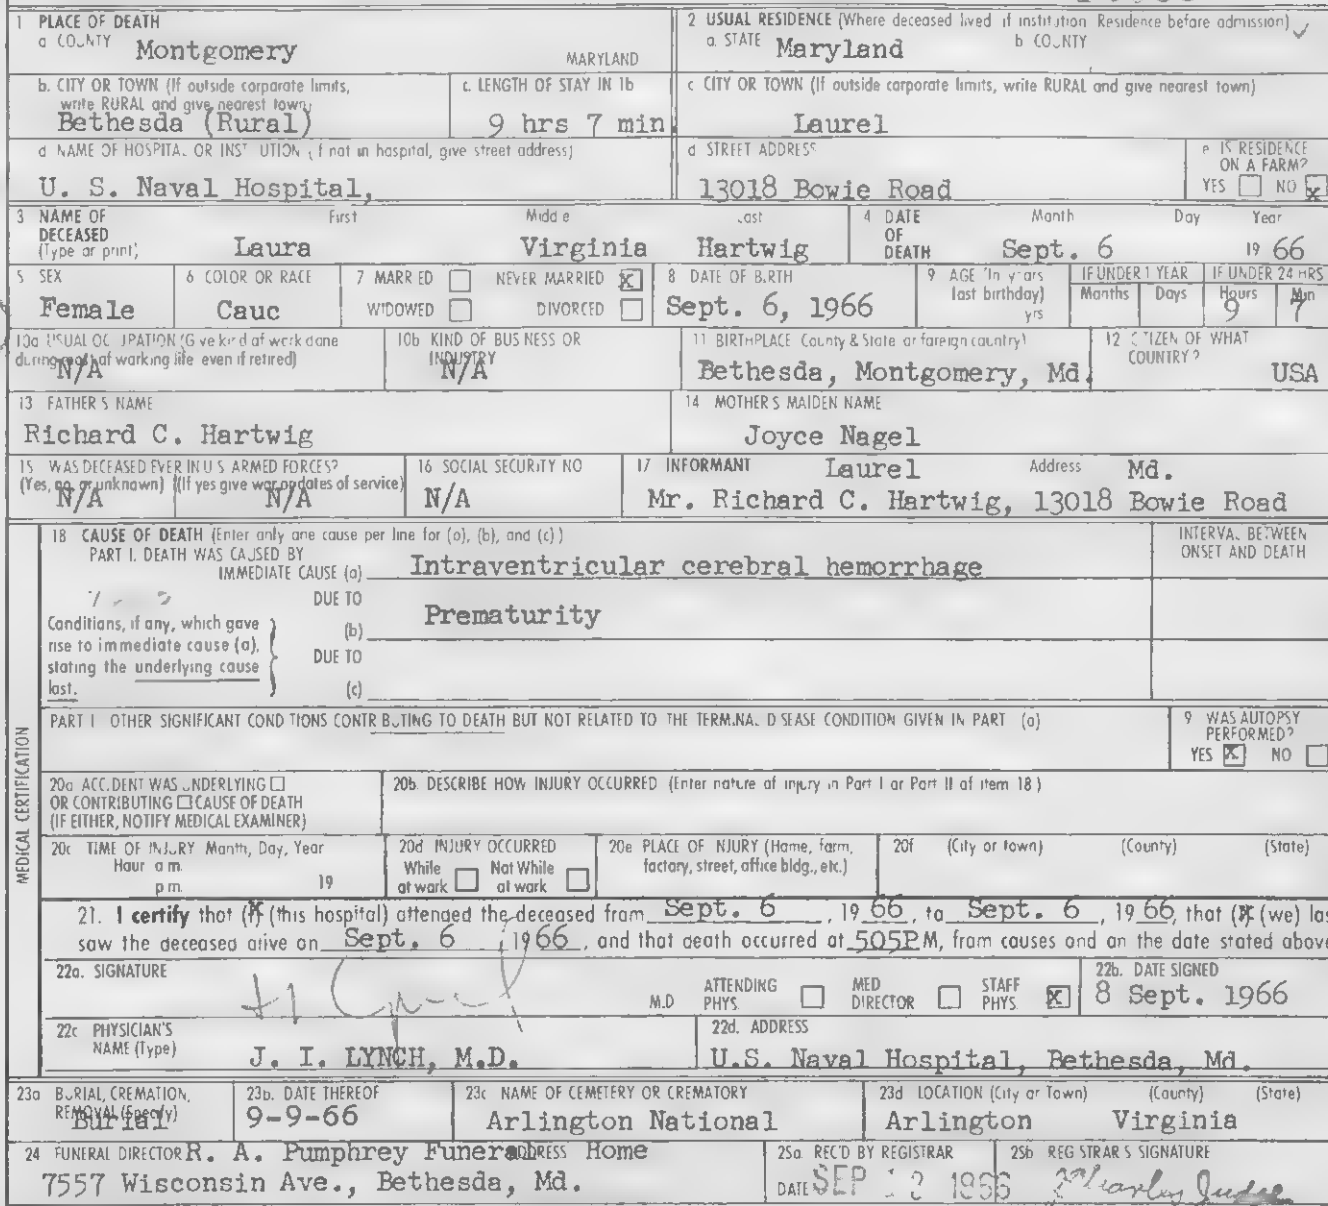 1 PLACE OF DEATH
a COUNTY Montgomery MARYLAND
2 USUAL RESIDENCE (Where deceased lived if institution Residence before admission)
a. STATE Maryland b COUNTY
b. CITY OR TOWN (If outside corporate limits, write RURAL and give nearest town)
Bethesda (Rural)
c. LENGTH OF STAY IN 1b
9 hrs 7 min
c CITY OR TOWN (If outside corporate limits, write RURAL and give nearest town)
Laurel
d NAME OF HOSPITAL OR INST UTION (f not in hospital, give street address)
U. S. Naval Hospital,
d STREET ADDRESS
13018 Bowie Road
e IS RESIDENCE ON A FARM?
YES NO x
3 NAME OF DECEASED (Type or print)
First Middle Last
Laura Virginia Hartwig
4 DATE OF DEATH
Month Day Year
Sept. 6 19 66
5 SEX
Female
6 COLOR OR RACE
Cauc
7 MARRIED NEVER MARRIED X
WIDOWED DIVORCED
8 DATE OF BIRTH
Sept. 6, 1966
9 AGE (In years last birthday) yrs
IF UNDER 1 YEAR
Months Days
IF UNDER 24 HRS
Hours Min
9 7
10a USUAL OCCUPATION (Give kind of work done during most of working life even if retired)
N/A
10b KIND OF BUSINESS OR INDUSTRY
N/A
11 BIRTHPLACE (County & State or foreign country)
Bethesda, Montgomery, Md.
12 CITIZEN OF WHAT COUNTRY?
USA
13 FATHER'S NAME
Richard C. Hartwig
14 MOTHER'S MAIDEN NAME
Joyce Nagel
15 WAS DECEASED EVER IN U S ARMED FORCES?
(Yes, no, or unknown) (If yes give war or dates of service)
N/A N/A
16 SOCIAL SECURITY NO
N/A
17 INFORMANT Laurel Address Md.
Mr. Richard C. Hartwig, 13018 Bowie Road
MEDICAL CERTIFICATION
18 CAUSE OF DEATH (Enter only one cause per line for (a), (b), and (c))
INTERVAL BETWEEN ONSET AND DEATH
PART I. DEATH WAS CAUSED BY
IMMEDIATE CAUSE (a) Intraventricular cerebral hemorrhage
Conditions, if any, which gave rise to immediate cause (a), stating the underlying cause last.
DUE TO
(b) Prematurity
DUE TO
(c)
PART I OTHER SIGNIFICANT CONDITIONS CONTRIBUTING TO DEATH BUT NOT RELATED TO THE TERMINAL DISEASE CONDITION GIVEN IN PART (a)
9 WAS AUTOPSY PERFORMED?
YES X NO
20a ACCIDENT WAS UNDERLYING
OR CONTRIBUTING CAUSE OF DEATH
(IF EITHER, NOTIFY MEDICAL EXAMINER)
20b. DESCRIBE HOW INJURY OCCURRED (Enter nature of injury in Part I or Part II of item 18)
20c TIME OF INJURY Month, Day, Year
Hour a m
p m. 19
20d INJURY OCCURRED
While at work Not While at work
20e PLACE OF INJURY (Home, farm, factory, street, office bldg., etc.)
20f (City or town) (County) (State)
21. I certify that (X (this hospital) attended the deceased from Sept. 6, 19 66, to Sept. 6, 19 66, that (X (we) las
saw the deceased alive on Sept. 6, 1966, and that death occurred at 505P M, from causes and on the date stated above
22a. SIGNATURE
M.D ATTENDING PHYS. MED DIRECTOR STAFF PHYS X
22b. DATE SIGNED
8 Sept. 1966
22c PHYSICIAN'S NAME (Type)
J. I. LYNCH, M.D.
22d. ADDRESS
U.S. Naval Hospital, Bethesda, Md.
23a BURIAL, CREMATION, REMOVAL (Specify)
Burial
23b. DATE THEREOF
9-9-66
23c NAME OF CEMETERY OR CREMATORY
Arlington National
23d LOCATION (City or Town) (County) (State)
Arlington Virginia
24 FUNERAL DIRECTOR R. A. Pumphrey Funeral ADDRESS Home
7557 Wisconsin Ave., Bethesda, Md.
25a REC'D BY REGISTRAR
DATE SEP 12 1966
25b REGISTRAR'S SIGNATURE
Charles Judge